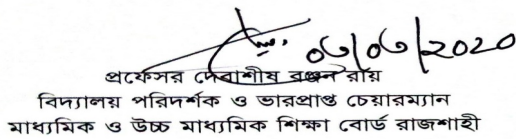 ০৬/০৬/2020
প্রফেসর দেবাশীষ রঞ্জন রায়
বিদ্যালয় পরিদর্শক ও ভারপ্রাপ্ত চেয়ারম্যান
মাধ্যমিক ও উচ্চ মাধ্যমিক শিক্ষা বোর্ড রাজশাহী